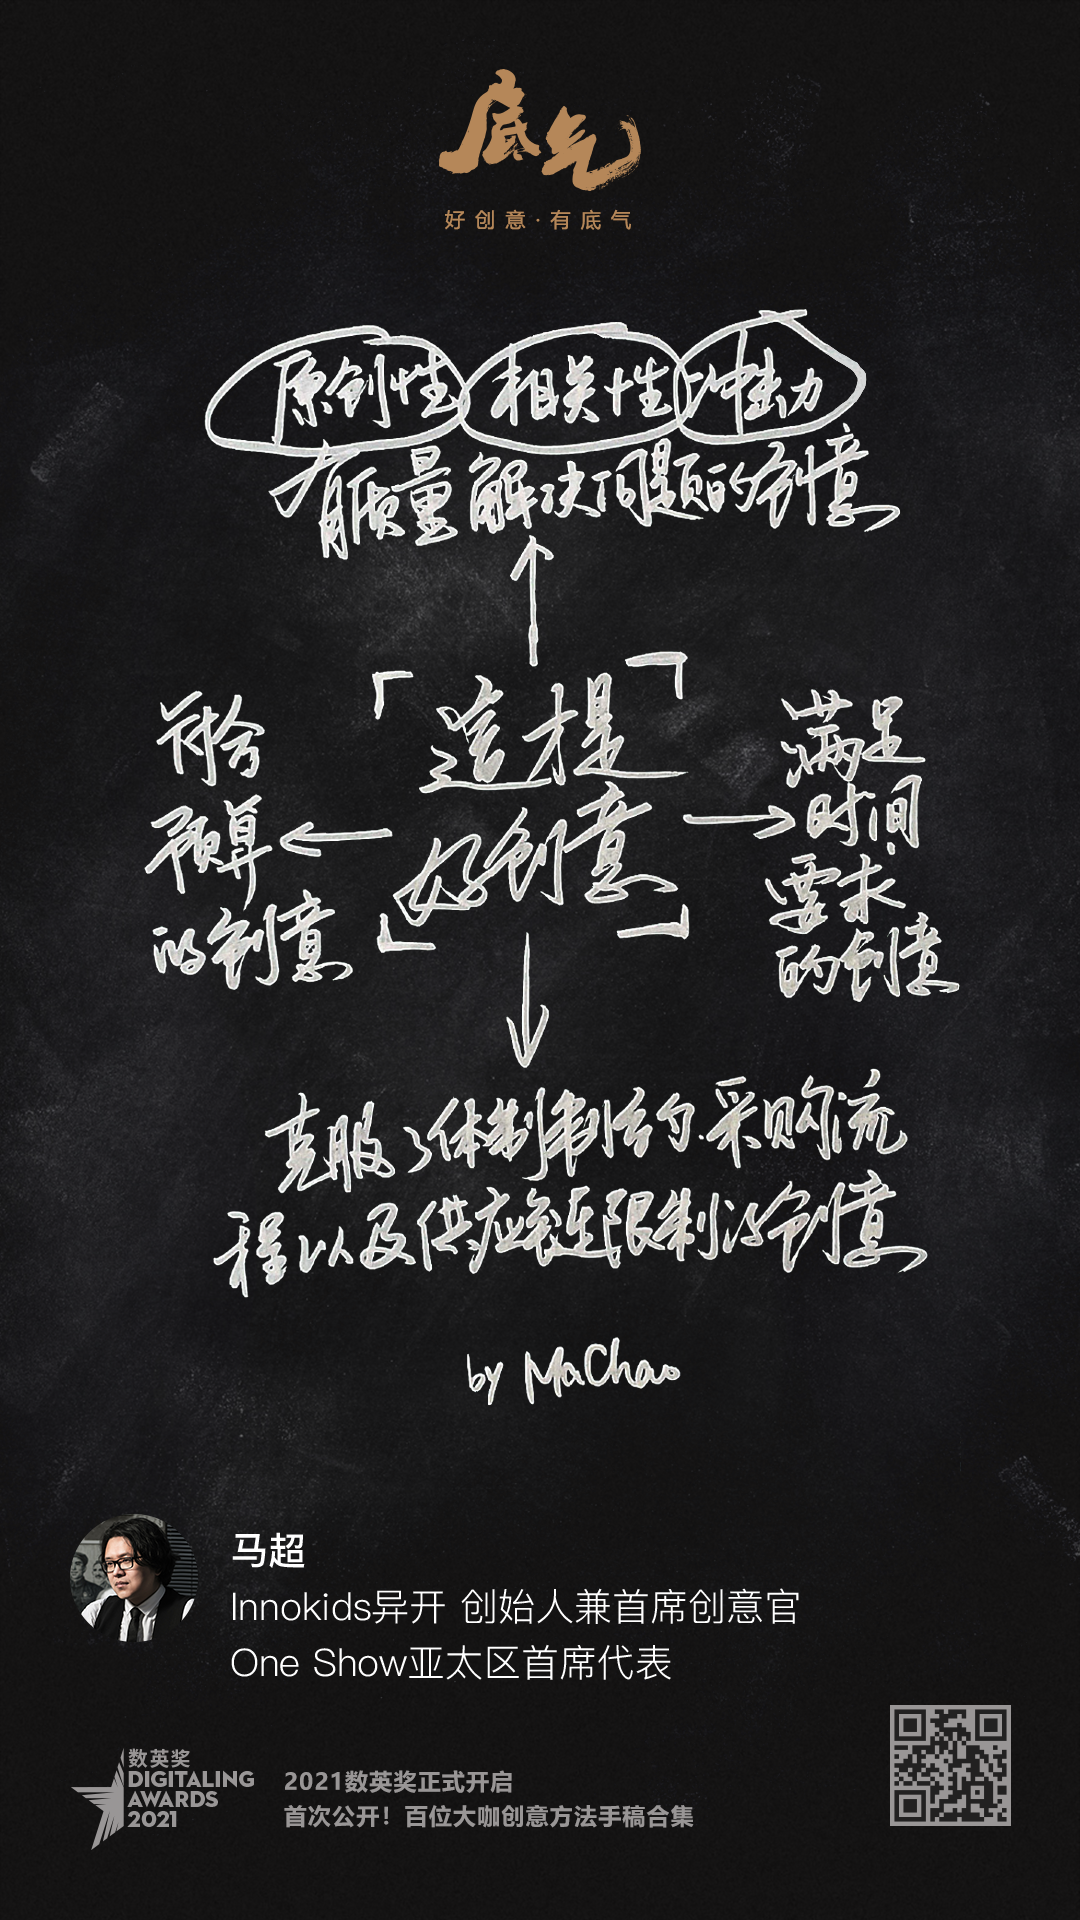 底气
好创意·有底气
原创性 相关性 冲击力
有质量解决问题的创意
「这才是
好创意」
符合
预算
的创意
满足
时间
要求
的创意
克服了体制制约、采购流
程以及供应链限制的创意
by MaChao
马超
Innokids异开 创始人兼首席创意官
One Show亚太区首席代表
数英奖
DIGITALING
AWARDS
2021
2021数英奖正式开启
首次公开！百位大咖创意方法手稿合集